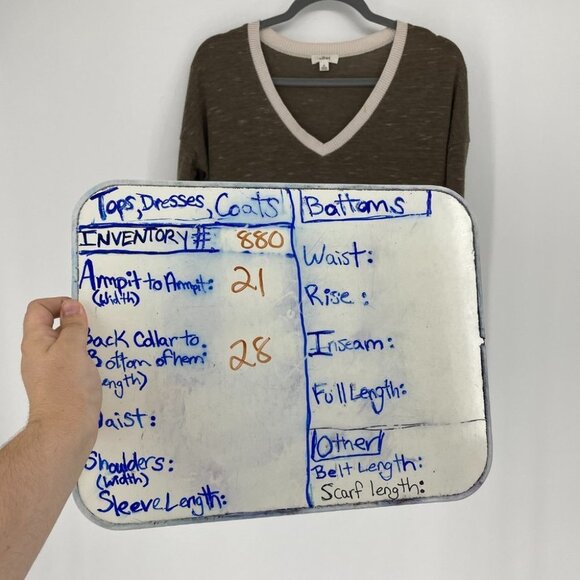 Tops, Dresses, Coats
INVENTORY # 880
Armpit to Armpit: 21
(Width)
Back Collar to
Bottom of hem: 28
(length)
Waist:
Shoulders:
(Width)
Sleeve Length:
Bottoms
Waist:
Rise:
Inseam:
Full Length:
Other
Belt Length:
Scarf length: